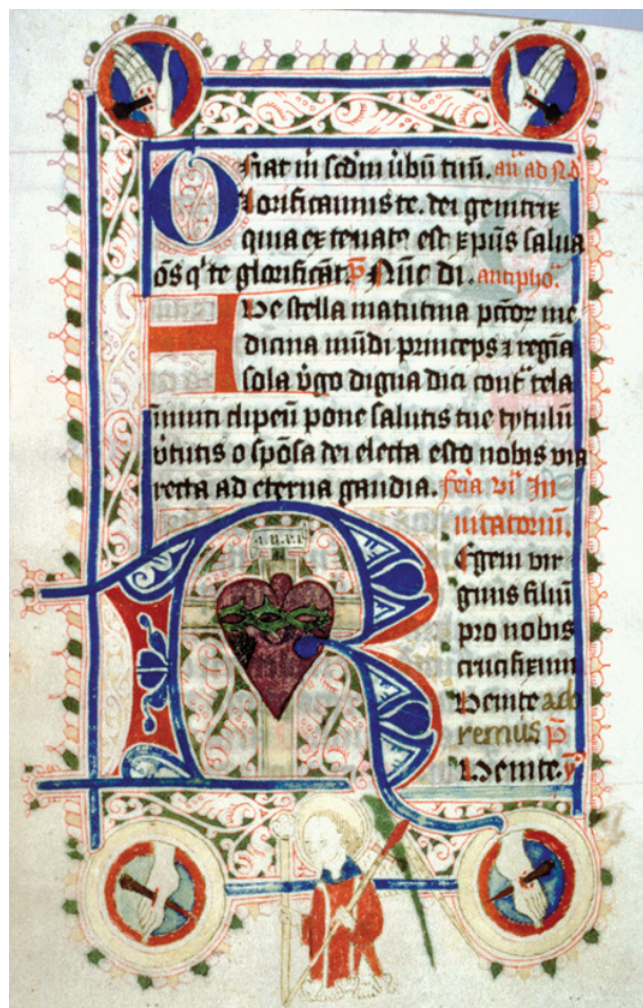 O fiat m̄ scdm̄ ūbū tuū. añ ad Nd̄
lorificamus te. dei genitrix
quia ex te natꝰ est xp̄us salua
ōs qͥ te glorificāt. p̄ Nūc di. antiphoᵃ
Ave stella matutina pctōꝝ me
dicina mūdi princeps ⁊ regīa
sola v̓go digna dici cont̄ tela
īimici clipeū pone salutis tue tytulū
v̓tutis o spōsa dei electa esto nobis via
recta ad eterna gaudia. fēia vi In
uitatoriū.
I.N.R.I
Regem vir
ginis filiū
pro nobis
crucifixum
Venite ado
remus p̄
Venite. ꝟ